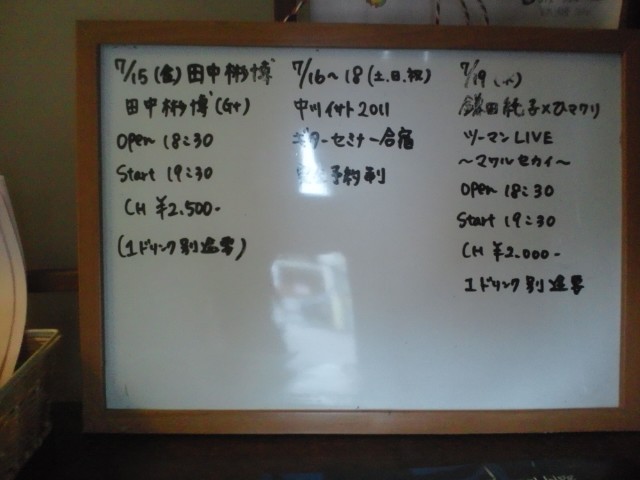 7/15 (金) 田中彬博
田中彬博 (Gt)
Open 18:30
Start 19:30
CH ¥2.500-
(1ドリンク別途要)
7/16~18 (土.日.祝)
中川イサト2011
ギターセミナー合宿
完全予約制
7/19 (火)
鎌田純子×ヒマワリ
ツーマンLIVE
~マワルセカイ~
Open 18:30
Start 19:30
CH ¥2.000-
1ドリンク別途要